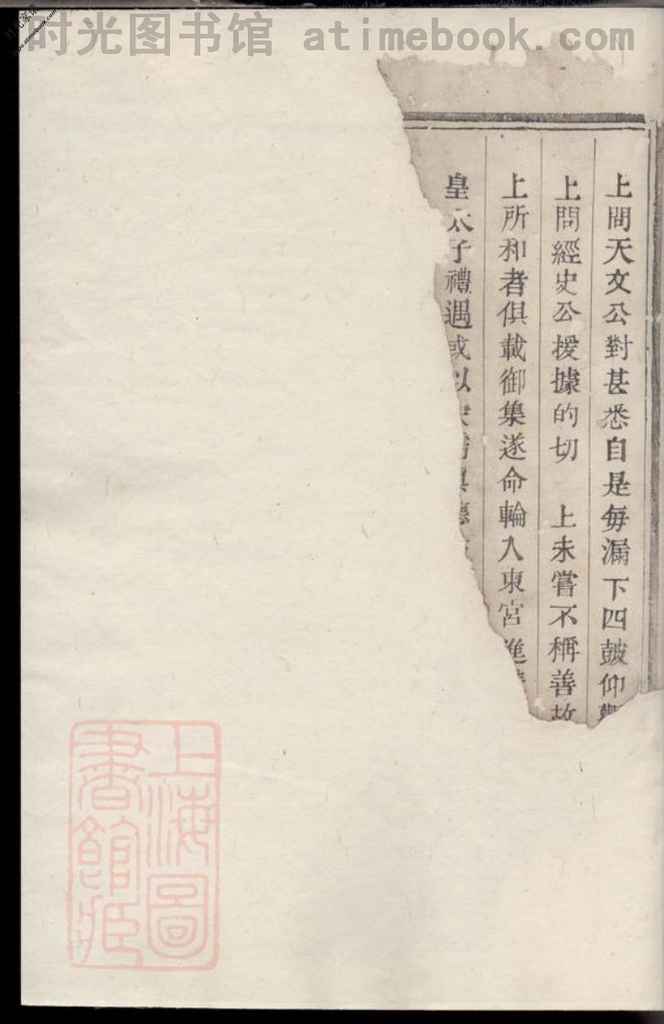 时光图书馆 atimebook.com
上問天文公對甚悉自是每漏下四鼓仰觀
上問經史公援據的切　上未嘗不稱善故
上所和者俱載御集遂命輪入東宮進
皇太子禮遇或以
上海圖書館藏